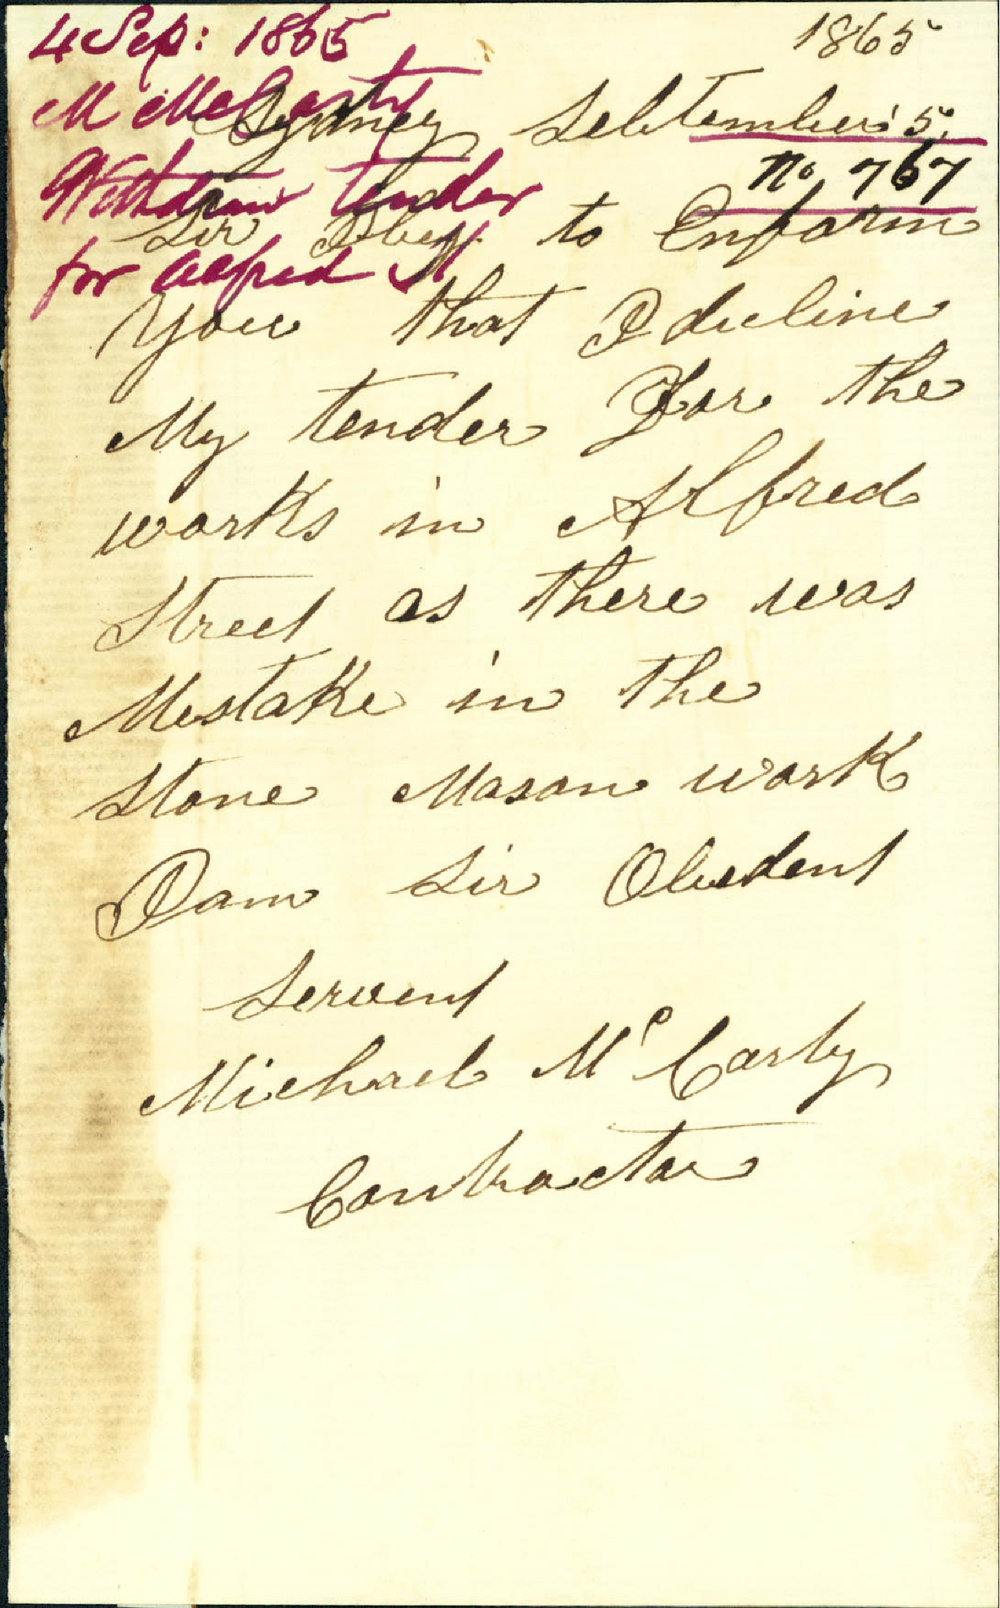 4 Sep: 1865
M McCarty
Withdraw tender
for Alfred St
1865
Sydney September 5.
No. 767
Sir I beg to Enform
You that I decline
My tender For the
works in Alfred
Street as there was
Mestake in the
Stone Mason work
I am Sir Obedent
Servent
Michael Mc Carty
Contractor